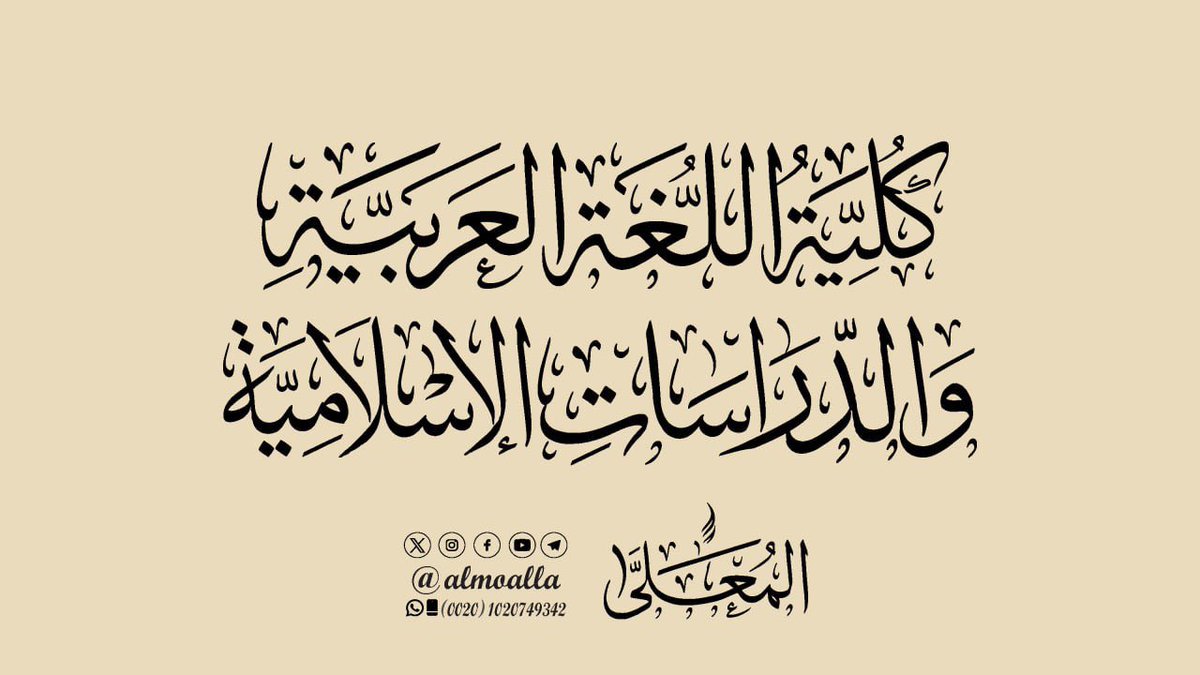 كُلِّيَّةُ اللُّغَةِ العَرَبِيَّةِ
وَالدِّرَاسَاتِ الإِسْلَامِيَّةِ
المُعَلَّى
@almoalla
(0020) 1020749342